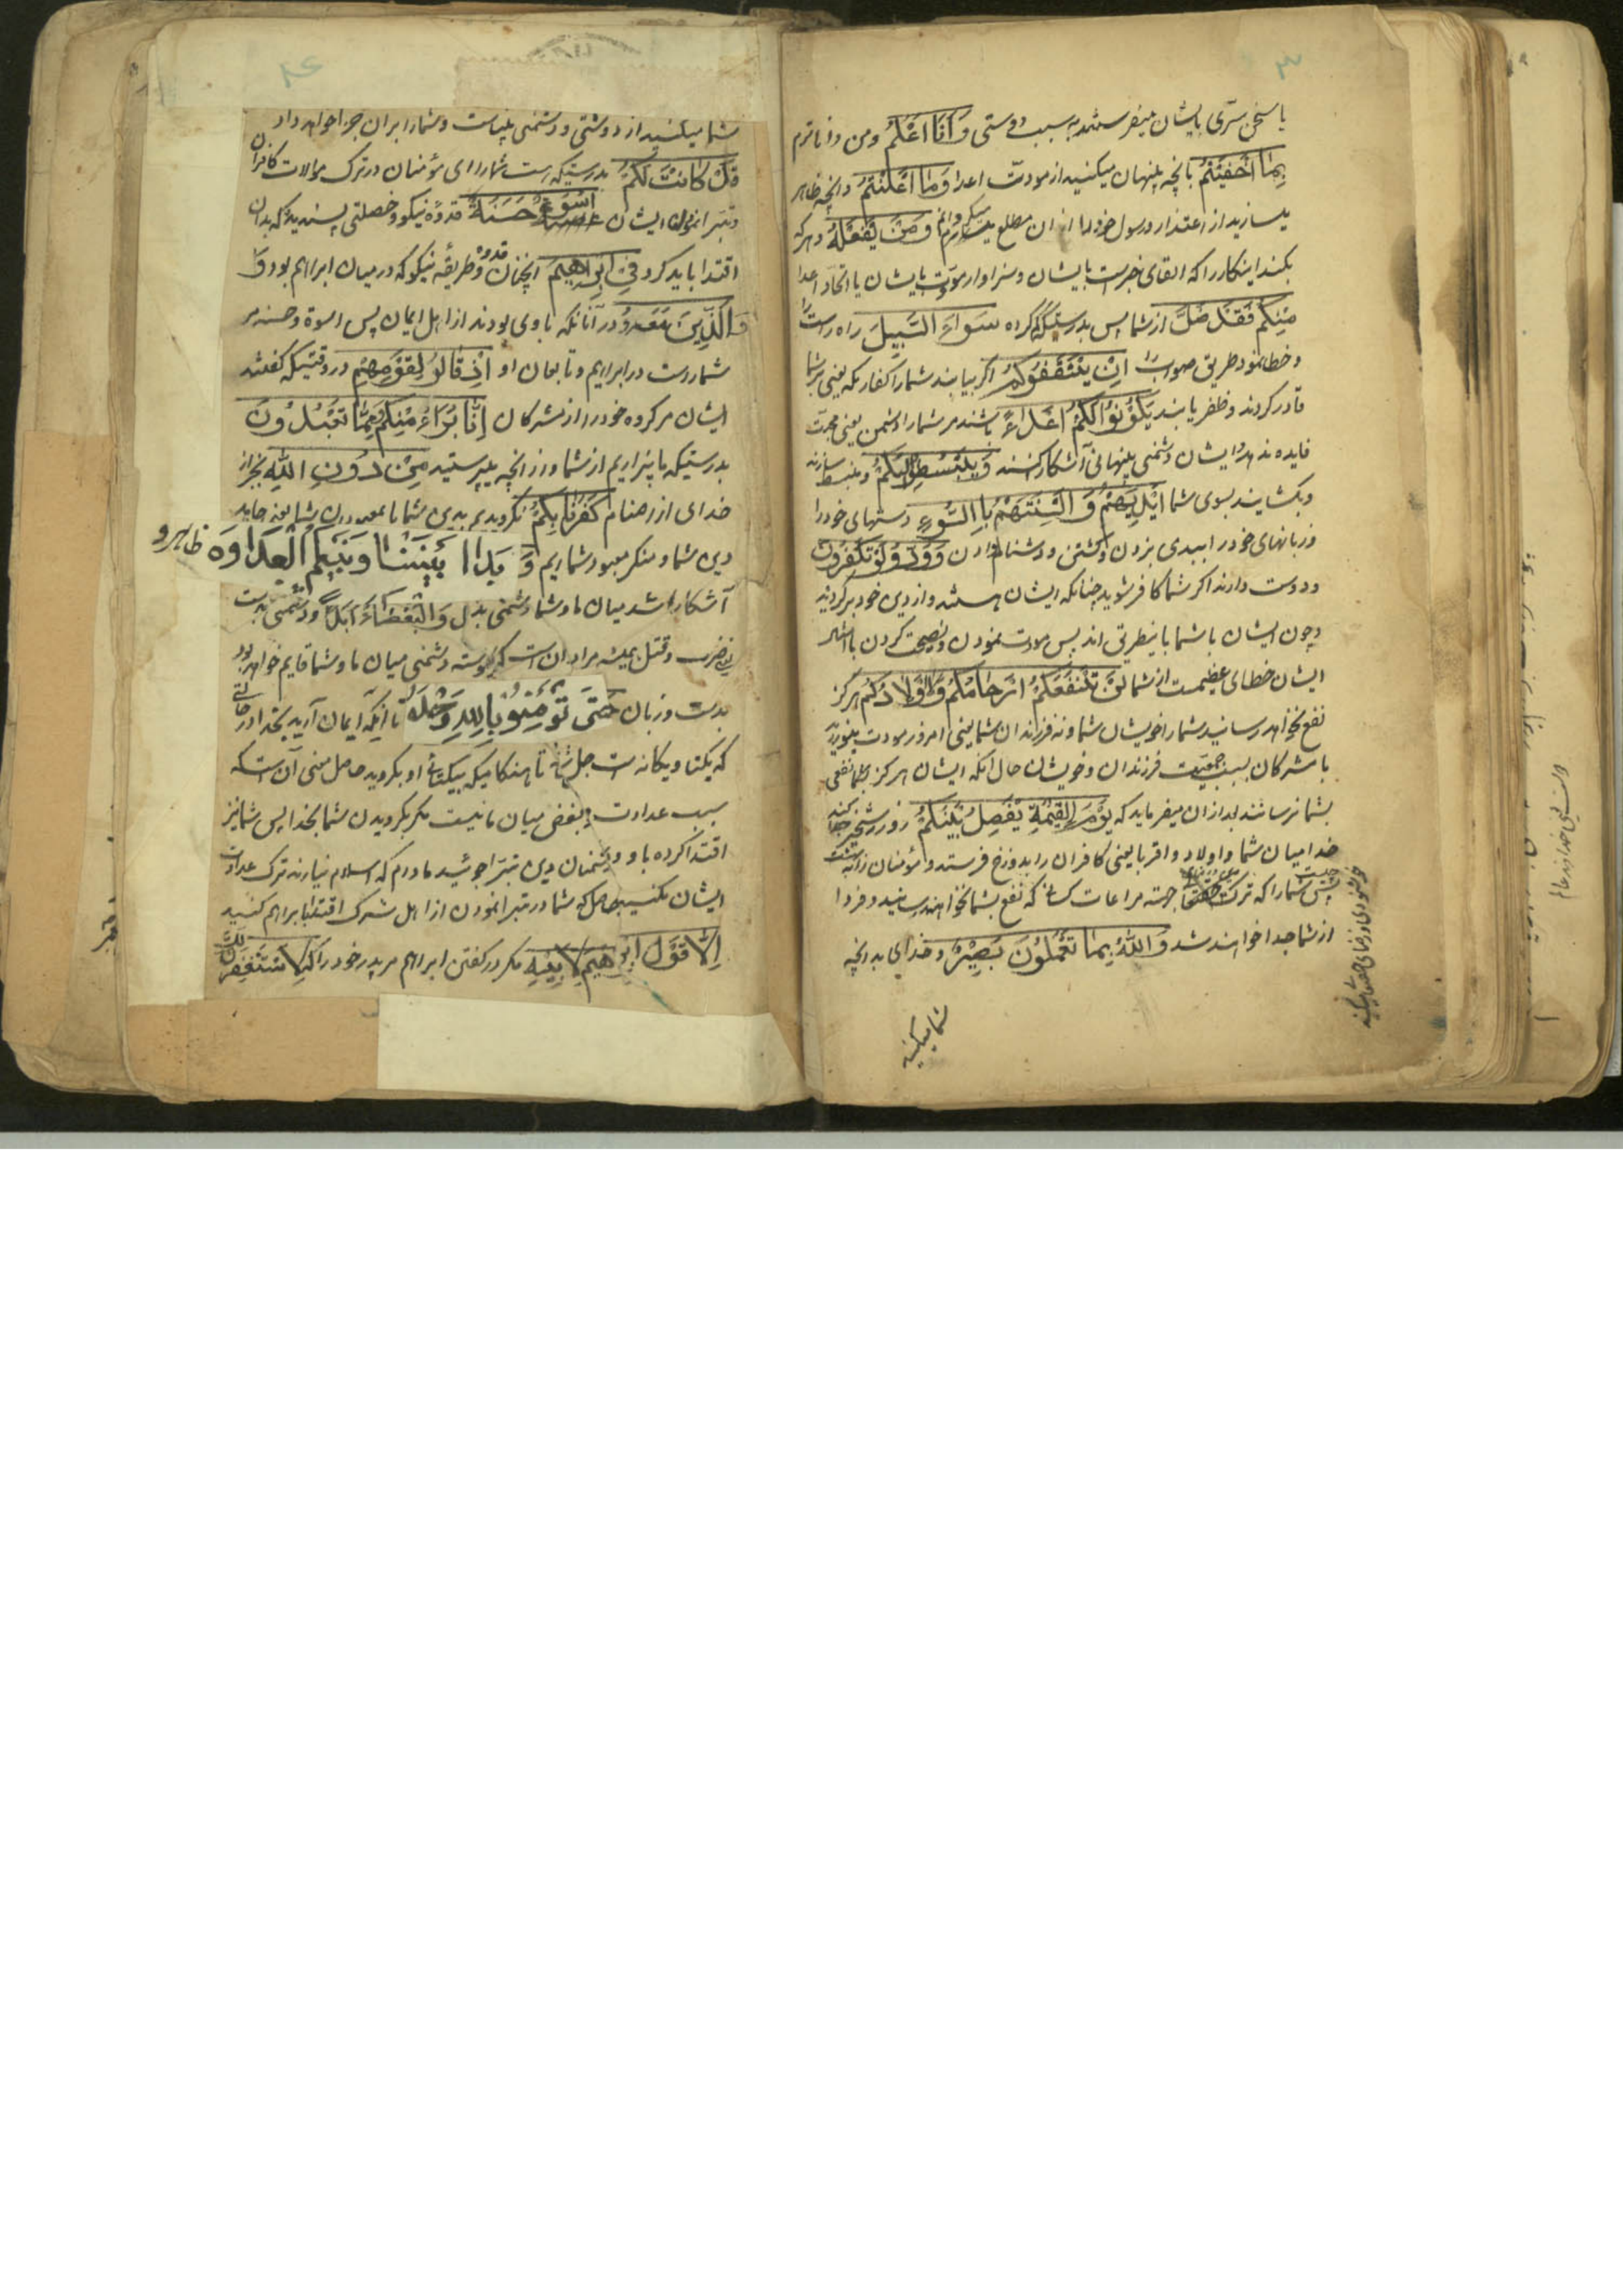 ۳
یا سخن سرّی بایشان میفرستید به سبب دوستی وَاَنَا اَعْلَمُ ومن داناترم
بِمَا اَخْفَیْتُمْ بانچه پنهان میکنید از مودّت اعدا وَمَا اَعْلَنْتُمْ وانچه ظاهر
میسازید از اعتذار ورسول خود را ازان مطلع وَمَنْ یَفْعَلْهُ وهرکه
بکند اینکار را که القای خبرست بایشان وسزاوار مودّت بایشان یا اتخاذ اعدا
مِنْکُمْ فَقَدْ ضَلَّ از شما پس بدرستیکه گم کرده سَوَاءَ السَّبِیلَ راه راست را
وخطا نمود طریق صواب را اِنْ یَثْقَفُوکُمْ اگر بیابند شما را کفار مکه یعنی بر شما
قادر گردند وظفر یابند یَکُوْنُوْا لَکُمْ اَعْدَاءً باشند مر شما را دشمن یعنی محبّت
فایده ندهد وایشان دشمنی پنهانی آشکار کنند وَیَبْسُطُوْا اِلَیْکُمْ ومنبسط سازند
وبکشایند بسوی شما اَیْدِیَهُمْ وَاَلْسِنَتَهُمْ بِالسُّوْءِ دستهای خود را
وزبانهای خود را ببدی بزدن وکشتن ودشنام دادن وَوَدُّوْا لَوْ تَکْفُرُوْنَ
ودوست دارند اگر شما کافر شوید چنانکه ایشان هستند واز دین خود برگردید
وچون ایشان با شما باینطریق اند پس مودت نمودن ونصیحت کردن با
ایشان خطای عظیمست از شما لَنْ تَنْفَعَکُمْ اَرْحَامُکُمْ وَلَا اَوْلَادُکُمْ هرگز
نفع نخواهد رسانید شما را خویشان شما ونه فرزندان شما یعنی امروز مودت میورزید
با مشرکان بسبب جمعیت فرزندان وخویشان حال آنکه ایشان هرگز بشما نفعی
بشما نرسانند بعد ازان میفرماید که یَوْمَ الْقِیٰمَةِ یَفْصِلُ بَیْنَکُمْ روز رستخیز جدا کند
خدا میان شما واولاد واقربا یعنی کافران را بدوزخ فرستد ومؤمنان را به بهشت
پس چیست شما را که ترک جهته مراعات کسانی که نفع بشما نخواهند رسانید وفردا
از شما جدا خواهند شد وَاللّٰهُ بِمَا تَعْمَلُوْنَ بَصِیْرٌ وخدای بدانچه
شما میکنید
شما میکنید از دوستی ودشمنی بیناست وشما را بران جزا خواهد داد
قَدْ کَانَتْ لَکُمْ بدرستیکه هست شما را ای مؤمنان در ترک موالات کافران
وتبرا نمودن ایشان اُسْوَةٌ حَسَنَةٌ قدوهٔ نیکو وخصلتی پسندیده که بدان
اقتدا باید کرد فِیْ اِبْرٰهِیْمَ انچنان قدوه وطریقه نیکو که در میان ابراهیم بود
وَالَّذِیْنَ مَعَهُ ودر آنانکه با وی بودند از اهل ایمان پس اسوة وحسنه مر
شما راست در ابراهیم وتابعان او اِذْ قَالُوْا لِقَوْمِهِمْ در وقتیکه گفتند
ایشان مر گروه خود را از مشرکان اِنَّا بُرَآءُ مِنْکُمْ وَمِمَّا تَعْبُدُوْنَ
بدرستیکه ما بیزاریم از شما وزانچه میپرستید مِنْ دُوْنِ اللّٰهِ بجز از
خدای از اصنام کَفَرْنَا بِکُمْ نگرویدیم بدین شما یا بمعبودان شما
دین شما ومنکر معبود شماییم وَبَدَا بَیْنَنَا وَبَیْنَکُمُ الْعَدَاوَةُ ظاهر و
آشکارا شد میان ما وشما دشمنی بدل وَالْبَغْضَاءُ اَبَدًا ودشمنی بدست
یعنی ضرب وقتل همیشه مراد آن است که پیوسته دشمنی میان ما وشما قایم خواهد بود
بدست وزبان حَتّٰی تُؤْمِنُوْا بِاللّٰهِ وَحْدَهُ تا آنکه ایمان آرید بخدا در حالتی
که یکتا ویگانه است جل شانه تا هنگامیکه بیکتایی او بگروید حاصل معنی آن است که
سبب عداوت وبغض میان ما نیست مگر بگرویدن شما بخدا پس شما نیز
اقتدا کرده باو ودشمنان دین تبرّا جوئید مادام که اسلام نیارند ترک عداوت
ایشان مکنید حاصل که شما در تبرا نمودن از اهل شرک اقتدا بابراهیم کنید
اِلَّا قَوْلَ اِبْرٰهِیْمَ لِاَبِیْهِ مگر در گفتن ابراهیم مر پدر خود را که لَاَسْتَغْفِرَنَّ لَکَ